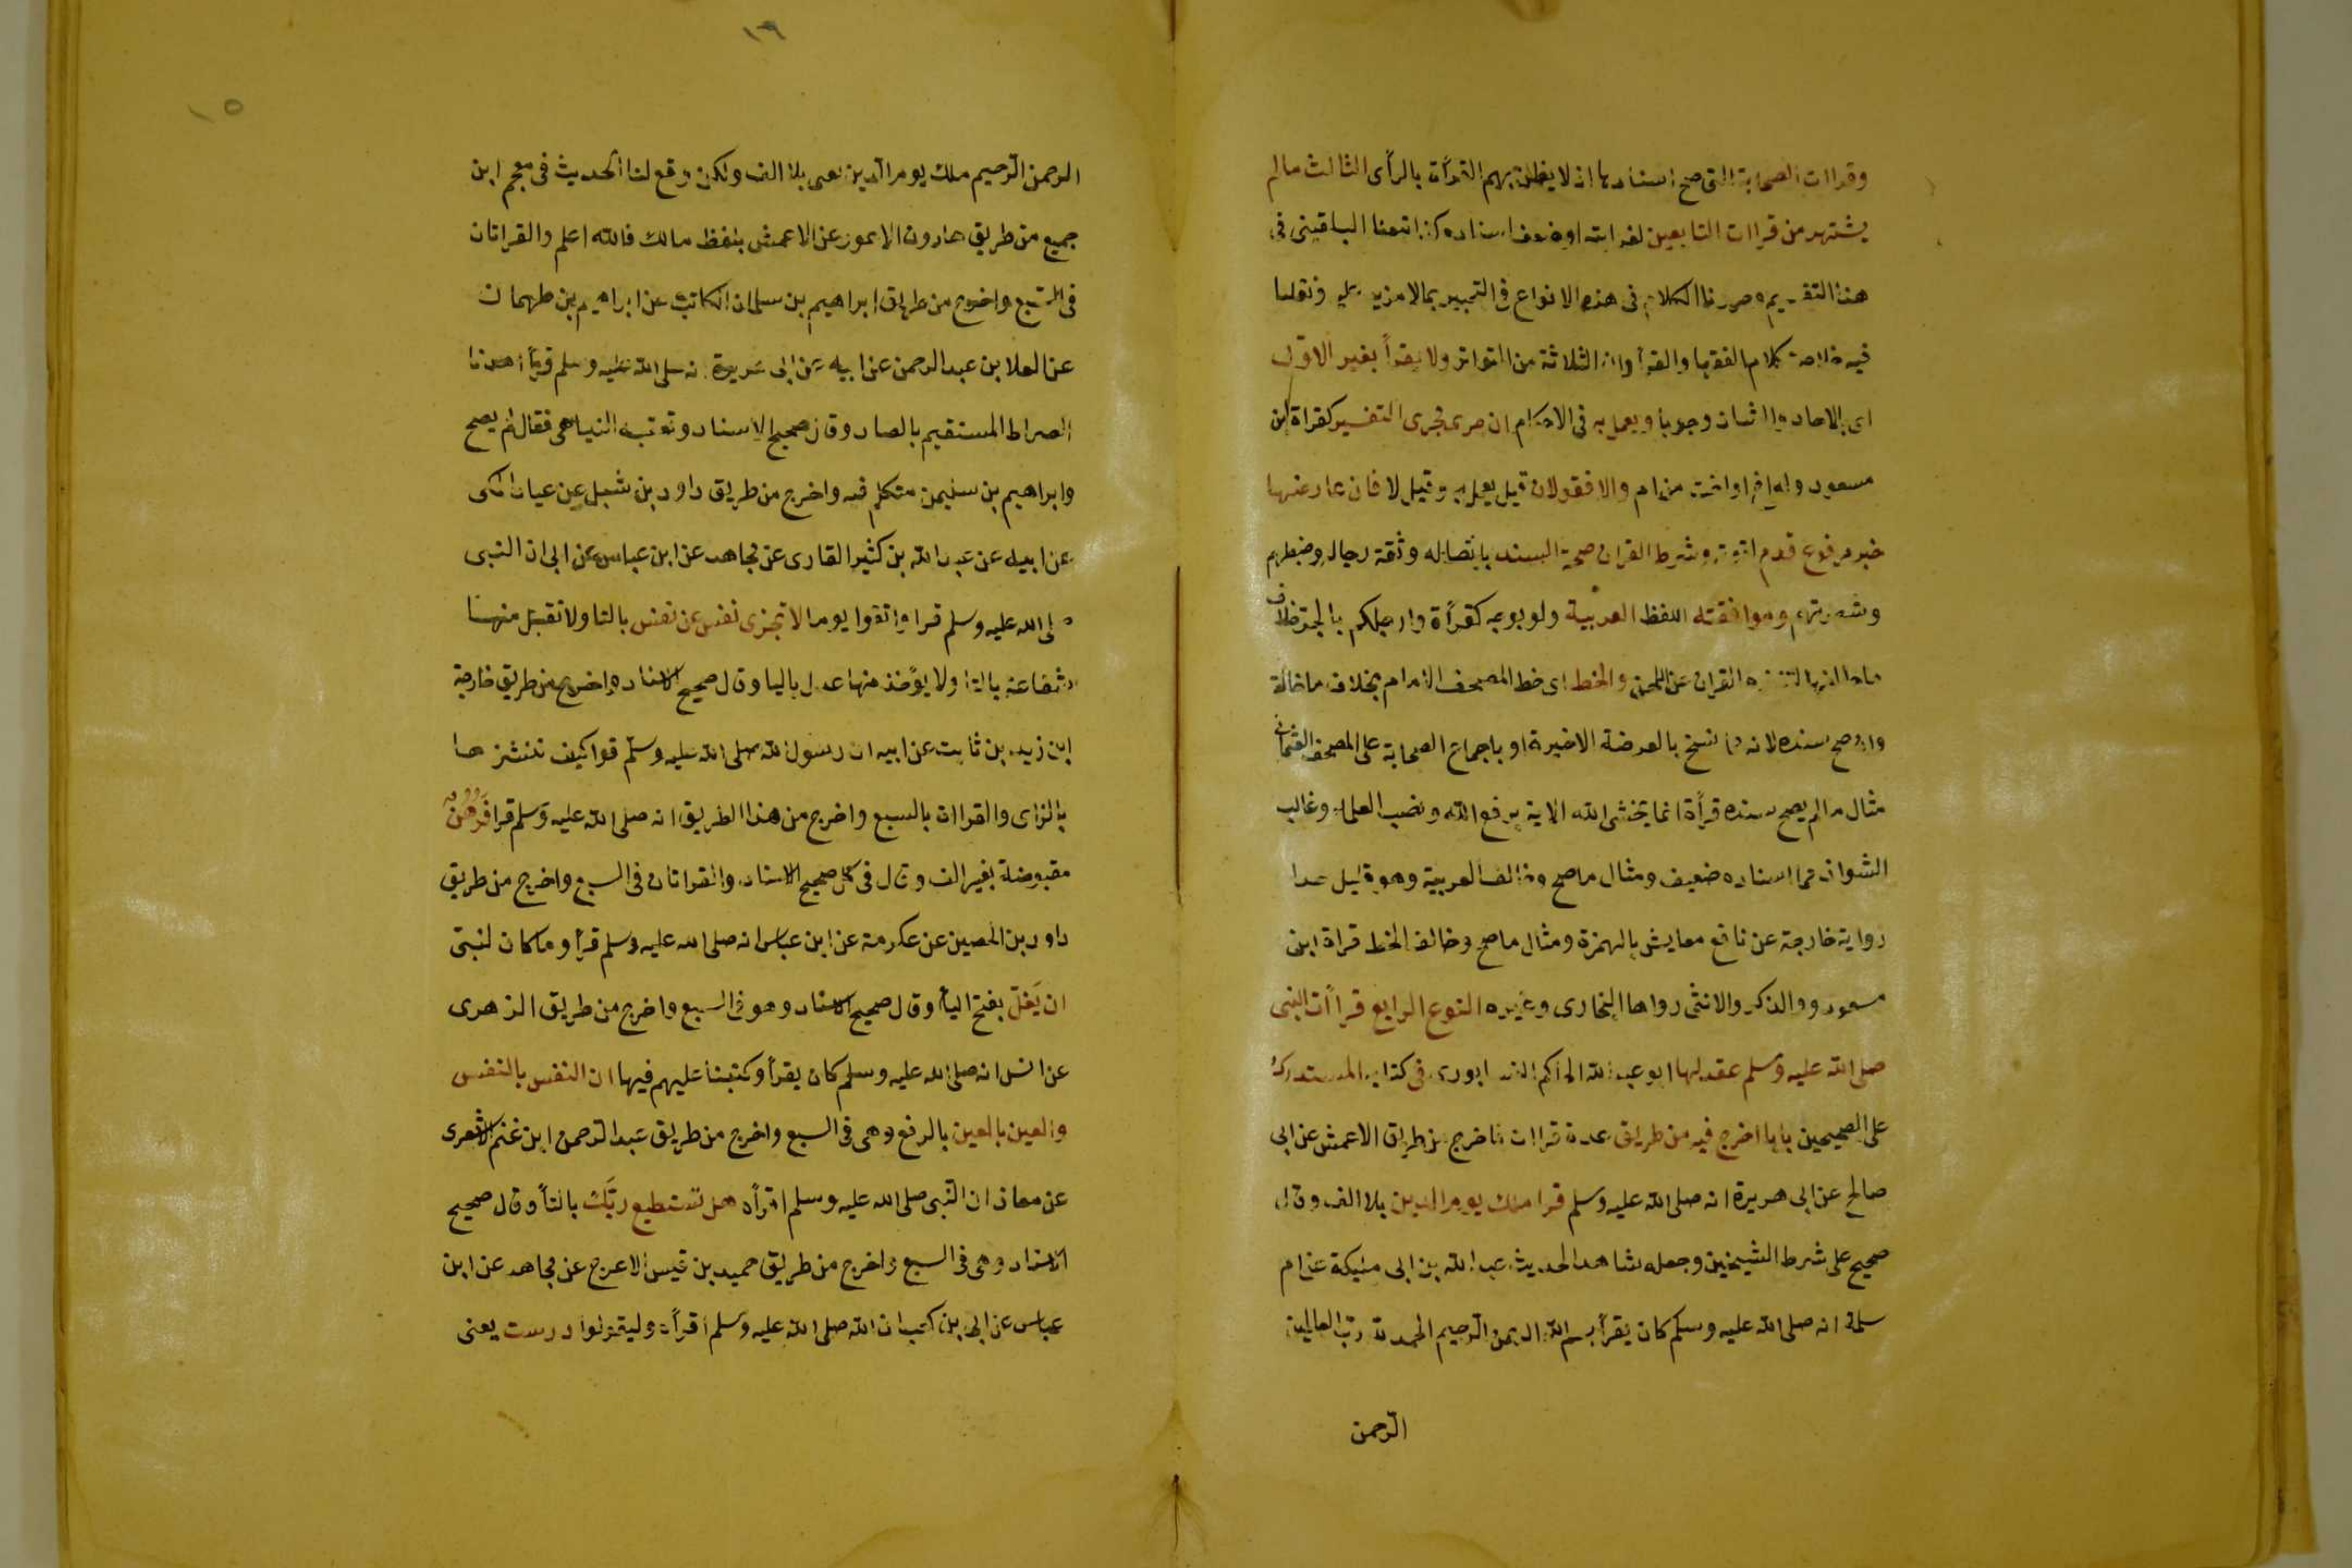 وقراات الصحابة التى صح اسنادها اذ لا يظن بهم القرأة بالرأى الثالث مالم
يشتهر من قراات التابعين لغرابته او ضعف اسناده كذا تبعنا البلقينى فى
هذا التقسيم وحررنا الكلام فى هذه الانواع فى التحبير بمالا مزيد عليه ونقلنا
فيه خلاصة كلام الفقها والقرأ وان الثلاثة من المتواتر ولا يقرأ بغير الاول
اى بالاحاد والشاذ وجوبا ويعمل به فى الاحكام ان جرى مجرى التفسير كقراة ابن
مسعود وله اخ او اخت من ام والا فقولان قيل يعمل به وقيل لا فان عارضها
خبر مرفوع قدم لقوته وشرط القران صحة السند باتصاله وثقة رجاله وضبطهم
وشهرتهم وموافقته اللفظ العربية ولو بوجه كقرأة وارجلكم بالجر خلاف
ما خالفها لتنزه القران عن اللحن والخط اى خط المصحف الامام بخلاف ما خالفه
وان صح سنده لانه مما نسخ بالعرضة الاخيرة او باجماع الصحابة على المصحف العثمانى
مثال مالم يصح سنده قرأة انما يخشى الله الاية برفع الله ونصب العلما وغالب
الشواذ مما اسناده ضعيف ومثال ما صح وخالف العربية وهو قليل جدا
رواية خارجة عن نافع معايش بالهمزة ومثال ما صح وخالف الخط قراة ابن
مسعود والذكر والانثى رواها البخارى وغيره النوع الرابع قراأت النبى
صلى الله عليه وسلم عقد لها ابو عبد الله الحاكم النيسابورى فى كتابه المستدرك
على الصحيحين بابا اخرج فيه من طريق عدة قراات فاخرج من طريق الاعمش عن ابى
صالح عن ابى هريرة انه صلى الله عليه وسلم قرا ملك يوم الدين بلا الف وقال
صحيح على شرط الشيخين وجعله شاهدا لحديث عبد الله بن ابى مليكة عن ام
سلمة انه صلى الله عليه وسلم كان يقرأ بسم الله الرحمن الرحيم الحمد لله رب العالمين
الرحمن
١٦
١٥
الرحمن الرحيم ملك يوم الدين يعنى بلا الف ولكن وقع لنا الحديث فى معجم ابن
جميع من طريق هارون الاعور عن الاعمش بلفظ مالك فالله اعلم والقراتان
فى السبع واخرج من طريق ابراهيم بن سلمان الكاتب عن ابراهيم بن طهمان
عن العلا بن عبد الرحمن عن ابيه عن ابى هريرة انه صلى الله عليه وسلم قرأ اهدنا
الصراط المستقيم بالصاد وقال صحيح الاسناد وتعقبه الذهبى فقال لم يصح
وابراهيم بن سليمن متكلم فيه واخرج من طريق داود بن شبل بن عباد المكى
عن ابيه عن عبد الله بن كثير القارى عن مجاهد عن ابن عباس عن ابى ان النبى
صلى الله عليه وسلم قرا واتقوا يوما لا تجزى نفس عن نفس بالتا ولا تقبل منها
شفاعة بالتا ولا يؤخذ منها عدل باليا وقال صحيح الاسناد واخرج من طريق خارجة
ابن زيد بن ثابت عن ابيه ان رسول الله صلى الله عليه وسلم قرا كيف ننشزها
بالزاى والقراات بالسبع واخرج من هذا الطريق انه صلى الله عليه وسلم قرا فَرُهُنٌ
مقبوضة بغير الف وقال فى كل صحيح الاسناد والقراتان فى السبع واخرج من طريق
داود بن الحصين عن عكرمة عن ابن عباس انه صلى الله عليه وسلم قرأ وما كان لنبى
ان يَغل بفتح اليأ وقال صحيح الاسناد وهو فى السبع واخرج من طريق الزهرى
عن انس انه صلى الله عليه وسلم كان يقرأ وكتبنا عليهم فيها ان النفس بالنفس
والعين بالعين بالرفع وهى فى السبع واخرج من طريق عبد الرحمن ابن غنم الاشعرى
عن معاذ ان النبى صلى الله عليه وسلم اقرأه هل تستطيع ربَّك بالتأ وقال صحيح
الاسناد وهى فى السبع واخرج من طريق حميد بن قيس الاعرج عن مجاهد عن ابن
عباس عن ابى بن كعب ان الله صلى الله عليه وسلم اقرأه وليقولوا درست يعنى